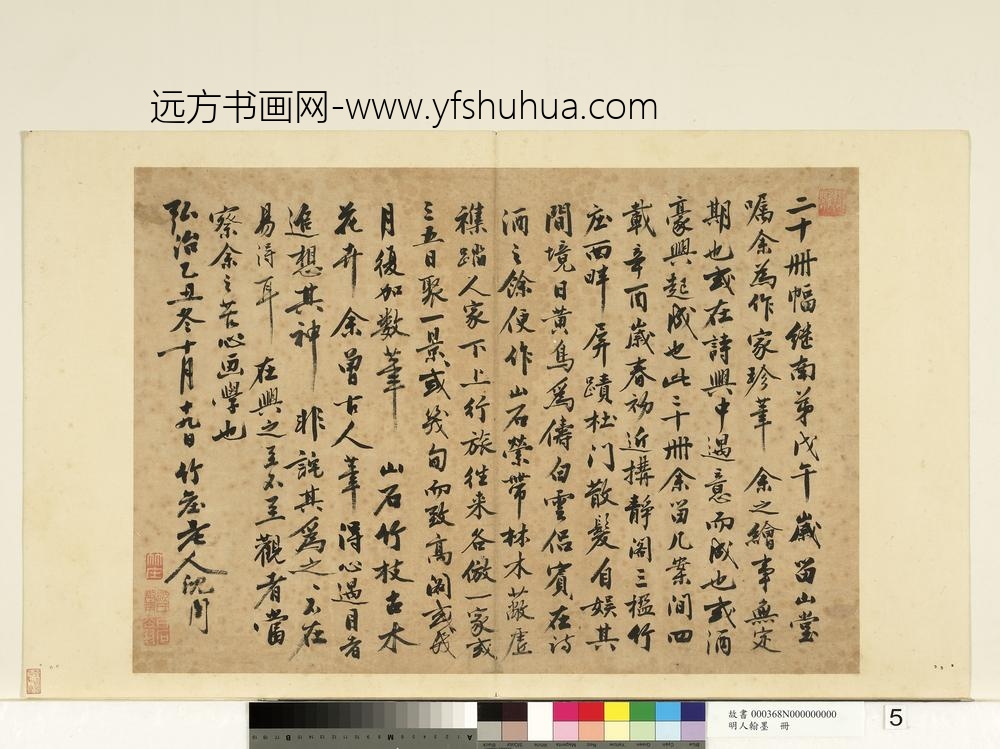 远方书画网-www.yfshuhua.com
二十冊幅继南弟戊午歲留山堂
嘱余為作家珍筆 余之繪事無定
期也或在詩興中遇意而成也或酒
豪興起成也此二十冊余留几案间四
載辛酉歲春初近搆靜阁三楹竹
庄面畔屏蹟杜门散髮自娱其
間境日黄鳥爲儔白雲侣賓在詩
酒之餘便作山石縈帶林木蔽虚
樵踏人家下上行旅往来各倣一家或
三五日聚一景或幾旬而致高阁或幾
月後加数筆 山石竹枝古木
花卉 余曾古人筆得心遇目者
追想其神 非説其爲之之不在
易得耳 在興之至不至觀者當
察余之苦心画學也
弘治乙丑冬十月十九日竹庄老人沈周
故書 000368N000000000
明人翰墨 冊
5